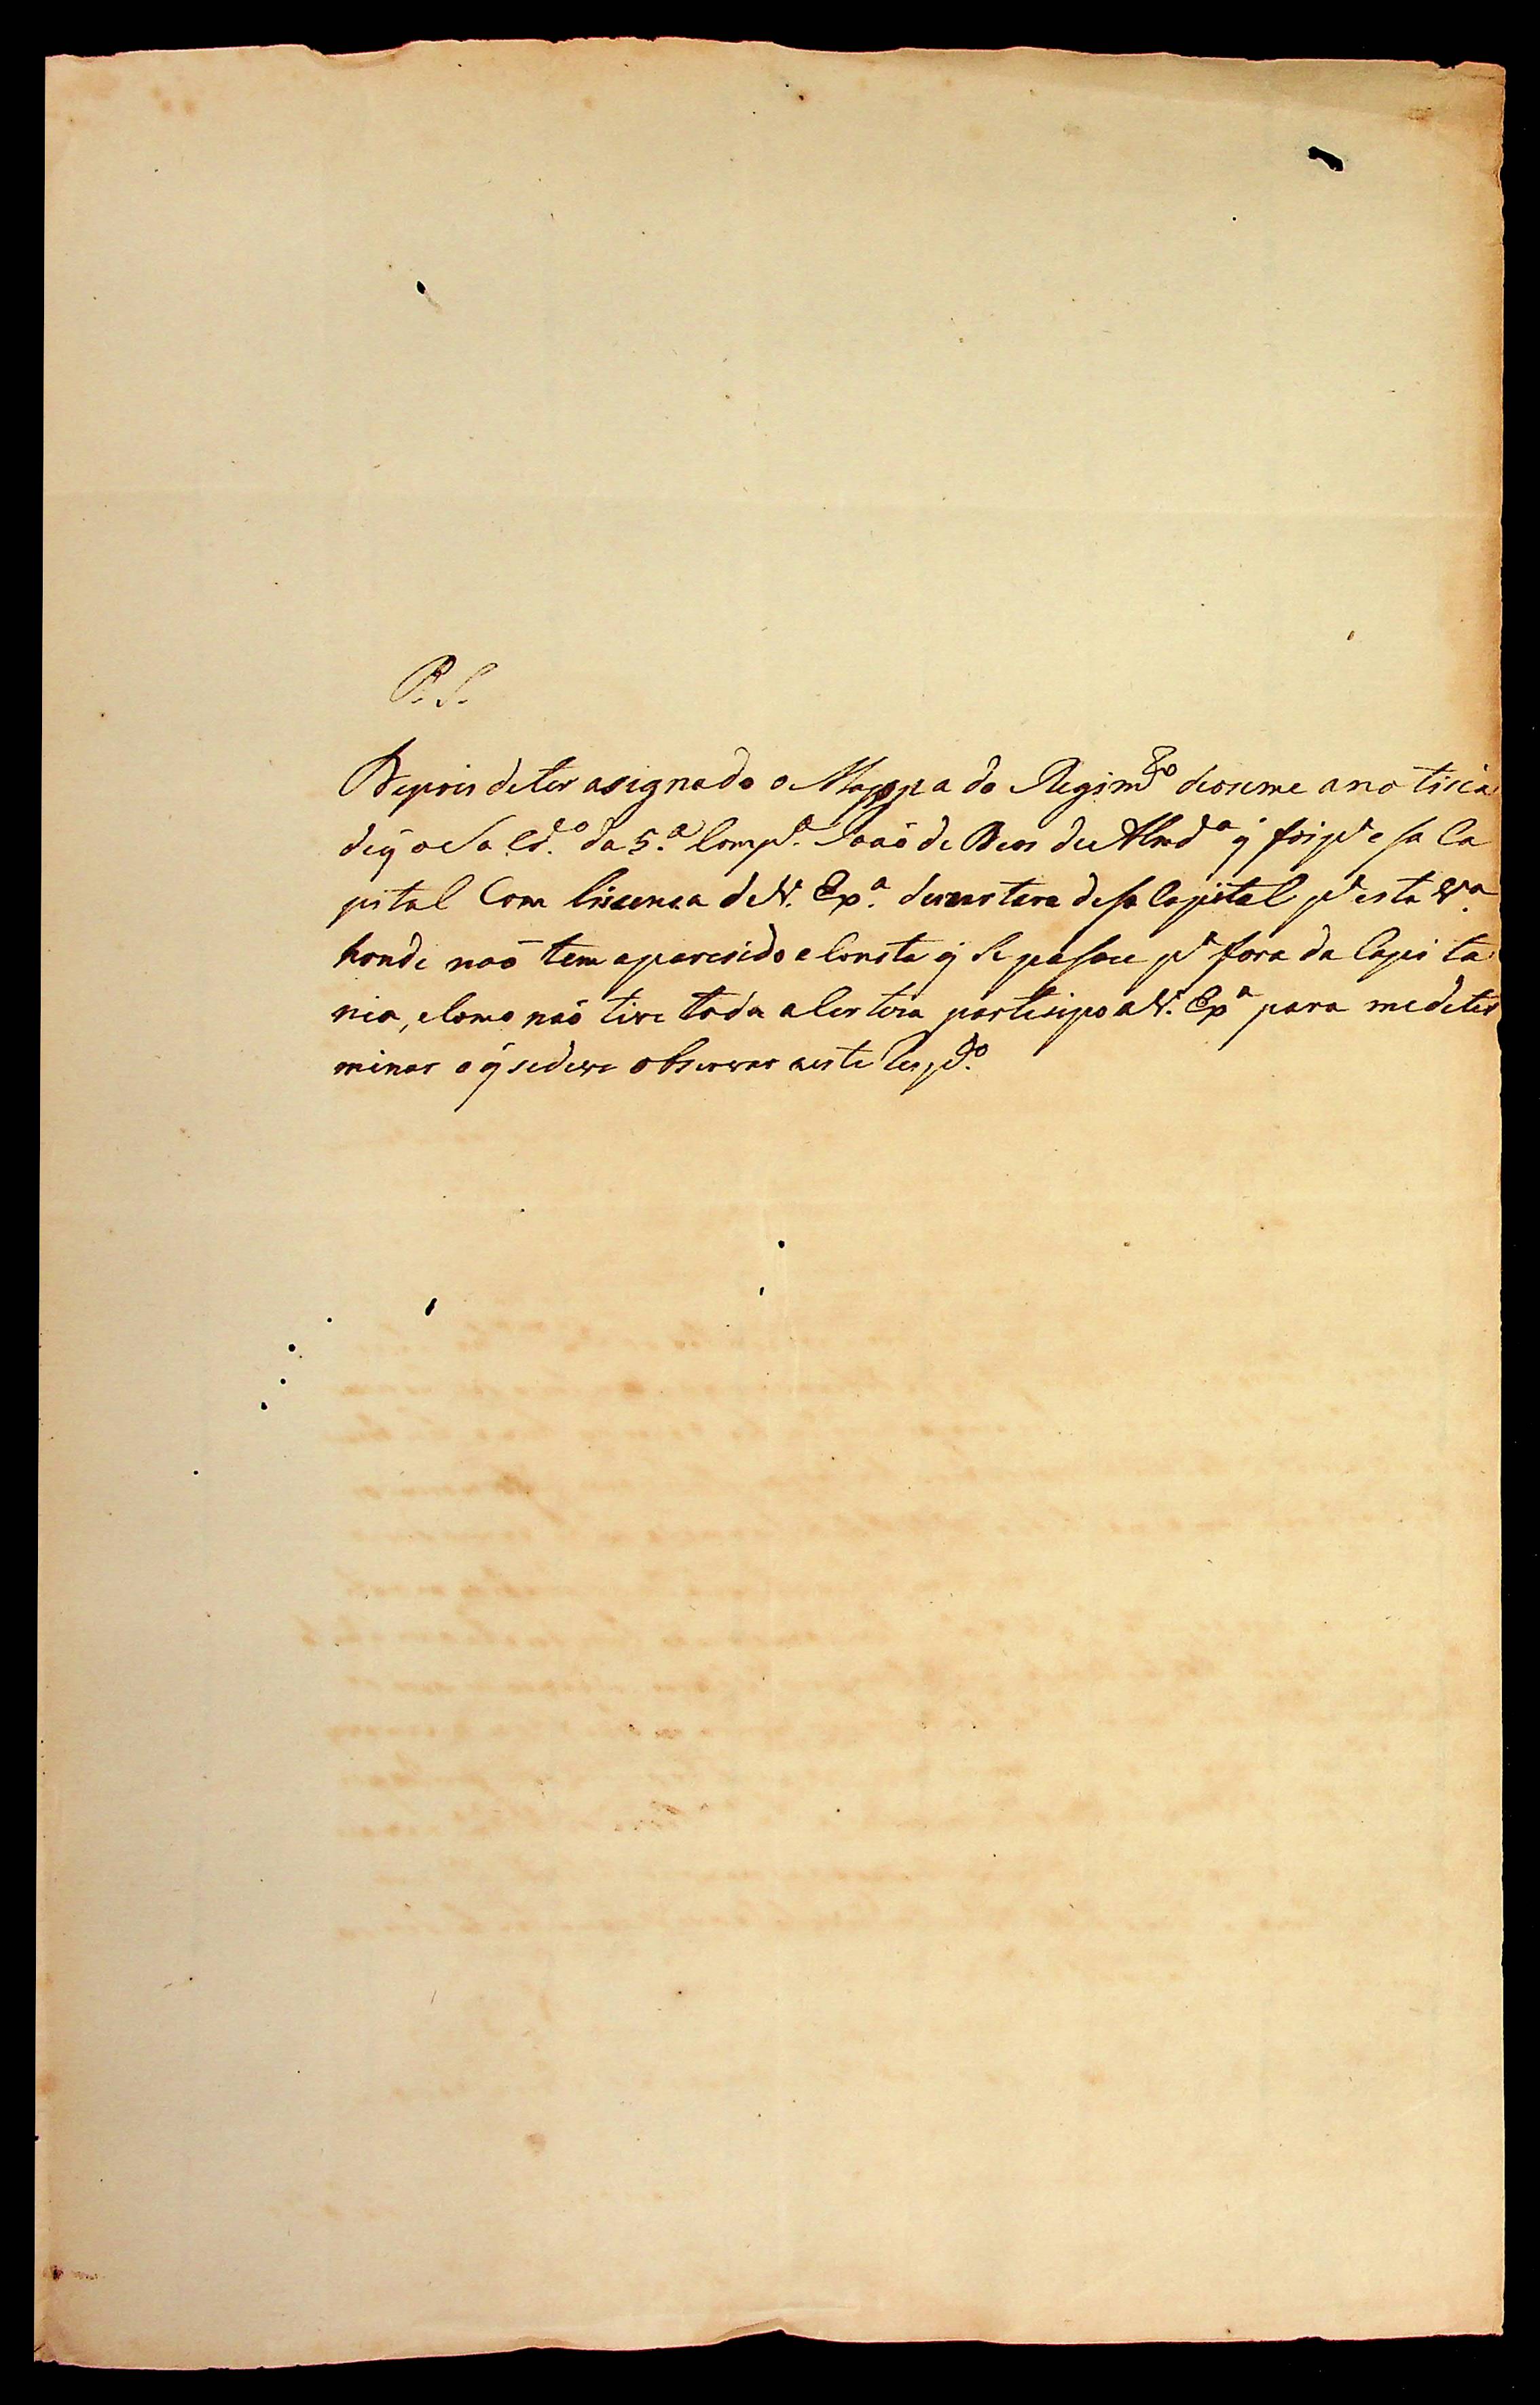 P. S.
Depois deter asignado o Mappa do Regim.to deoseme ano ticia
deq̃ o Sold.o da 5.a Comp.a Joaõ de Deos de Almd.a q̃ foi p.a esa Ca
pital Com lisensa de V. Ex.a desertara desa Capital p.a esta V.a
honde naõ tem aparesido e Consta q̃ Se pasou p.a fora da Capi ta
nia, eComo naõ tive toda a Certeza partisipo a V. Ex.a para medeter
minar o q̃ sedeve observar neste Resp.to